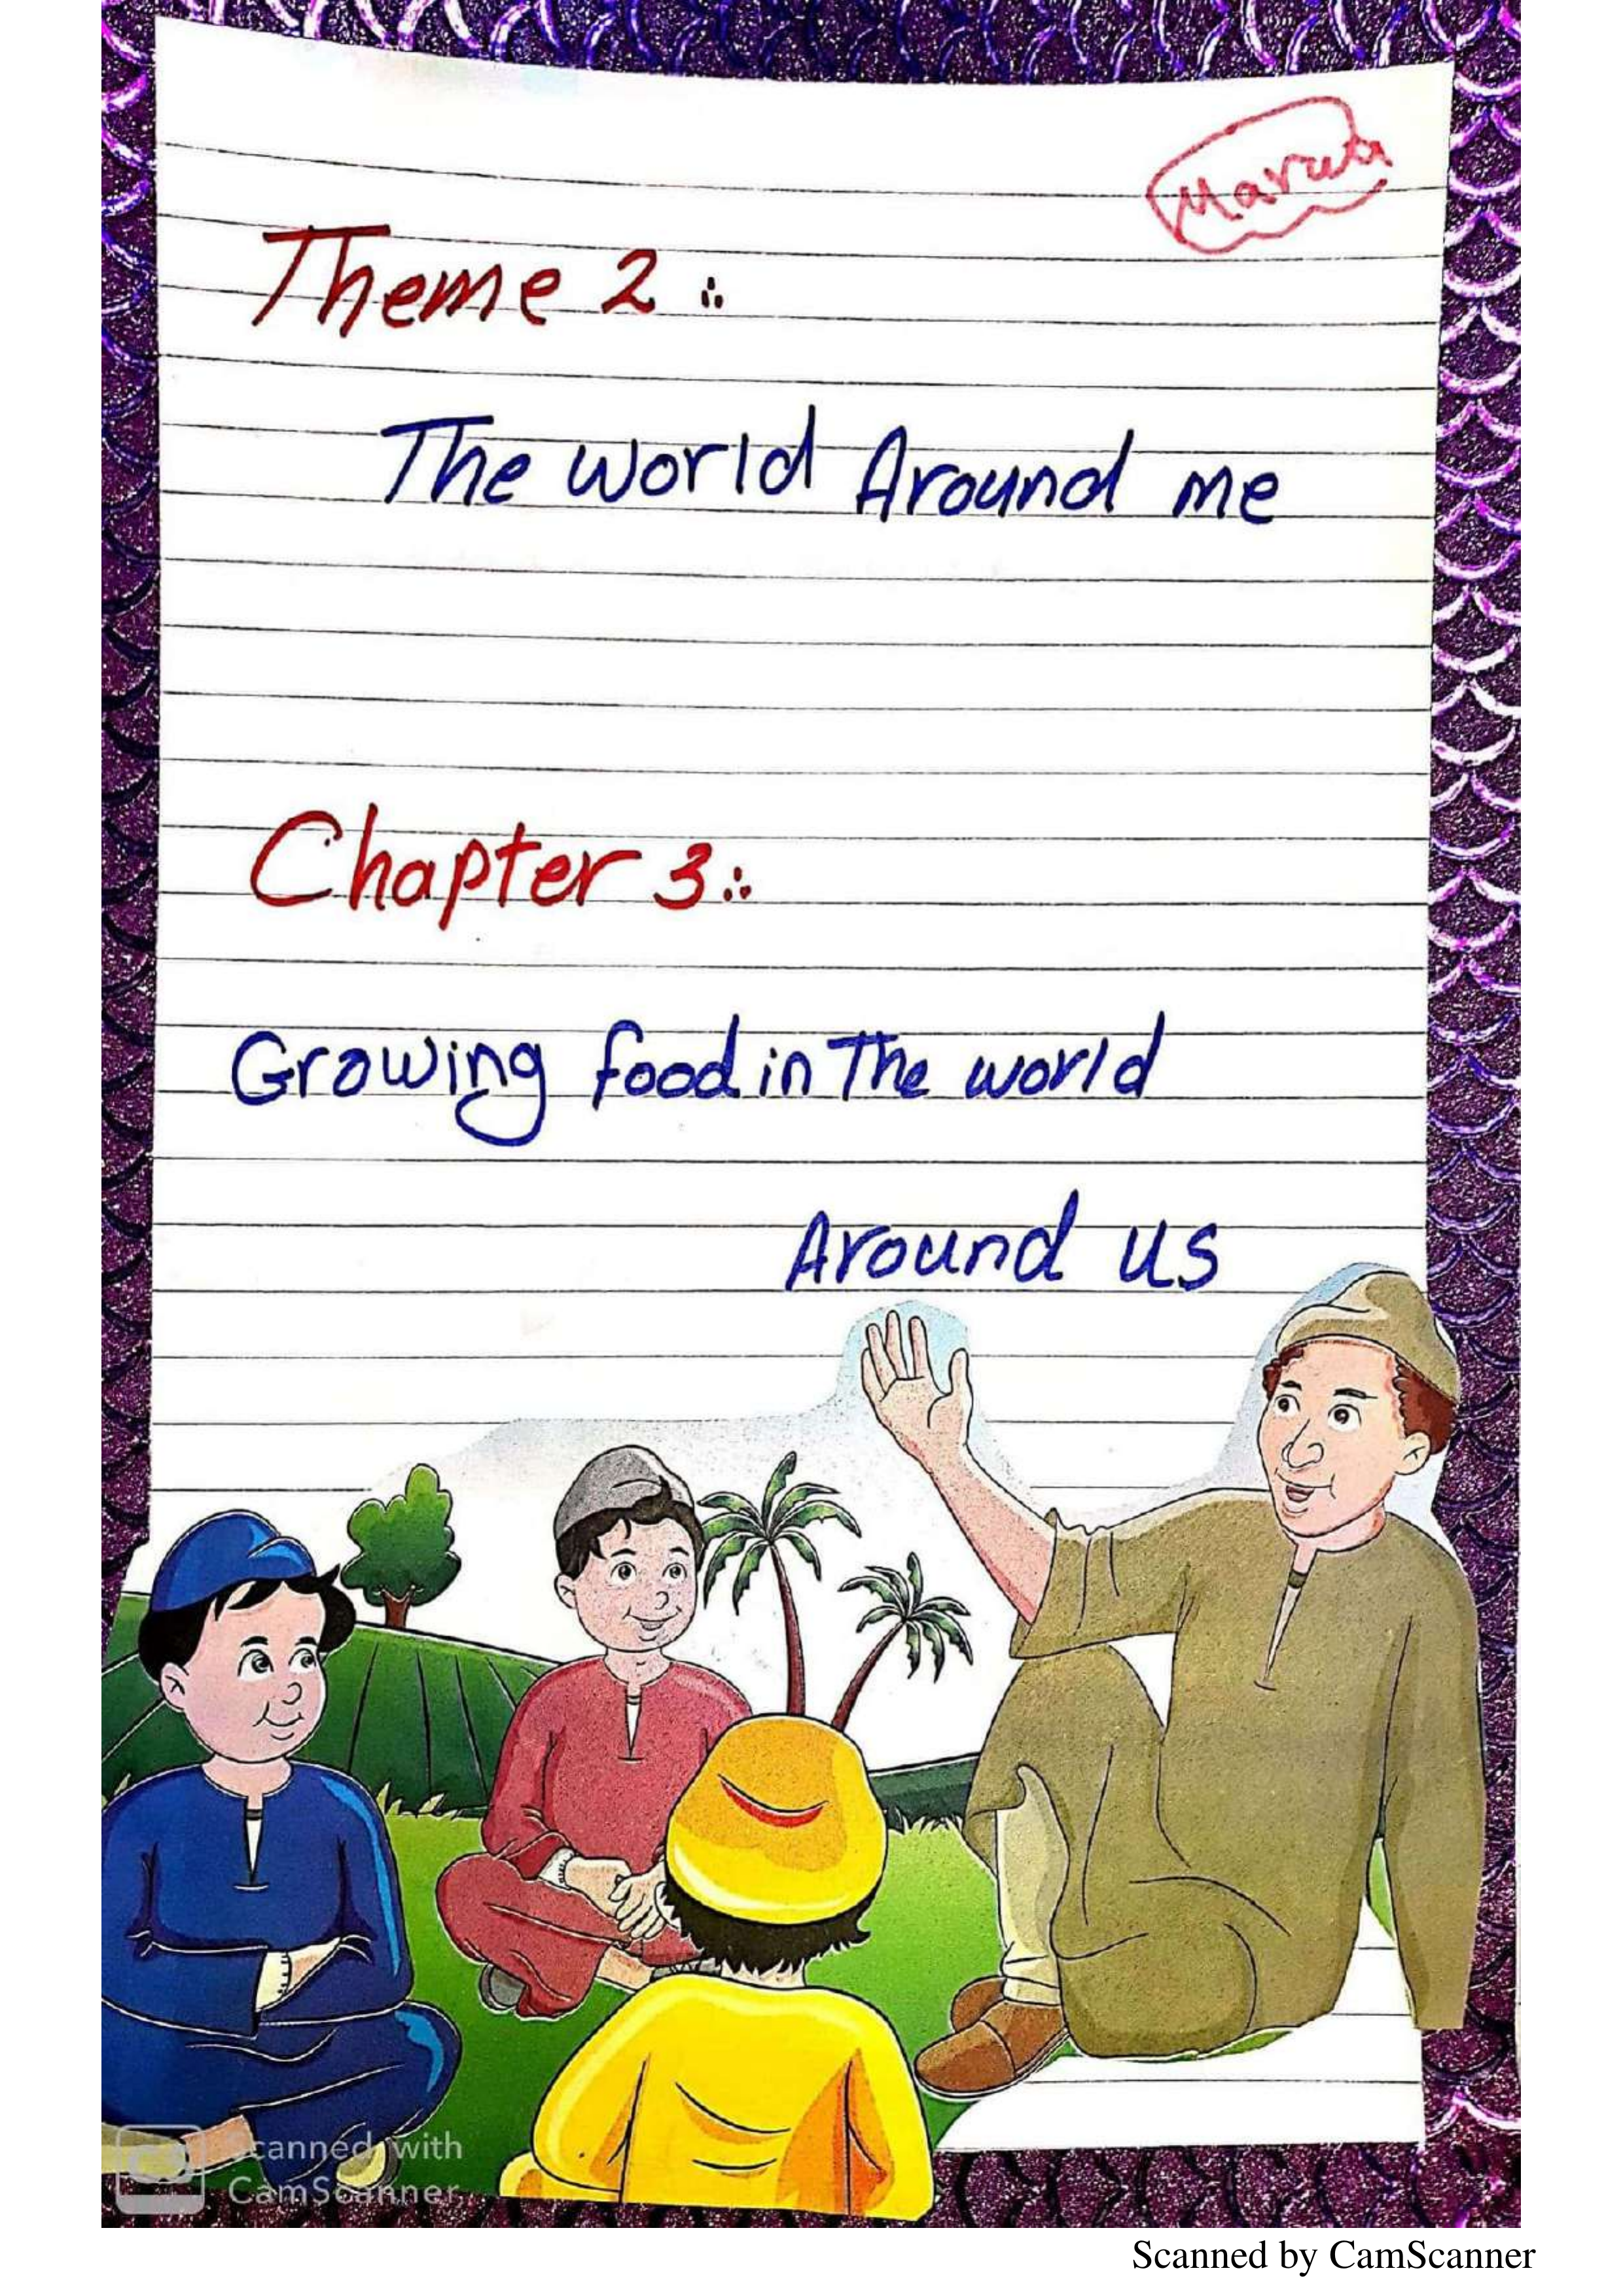 Marwa
Theme 2 :
The world Around me
Chapter 3 :
Growing food in The world
Around us
Scanned with
CamScanner
Scanned by CamScanner